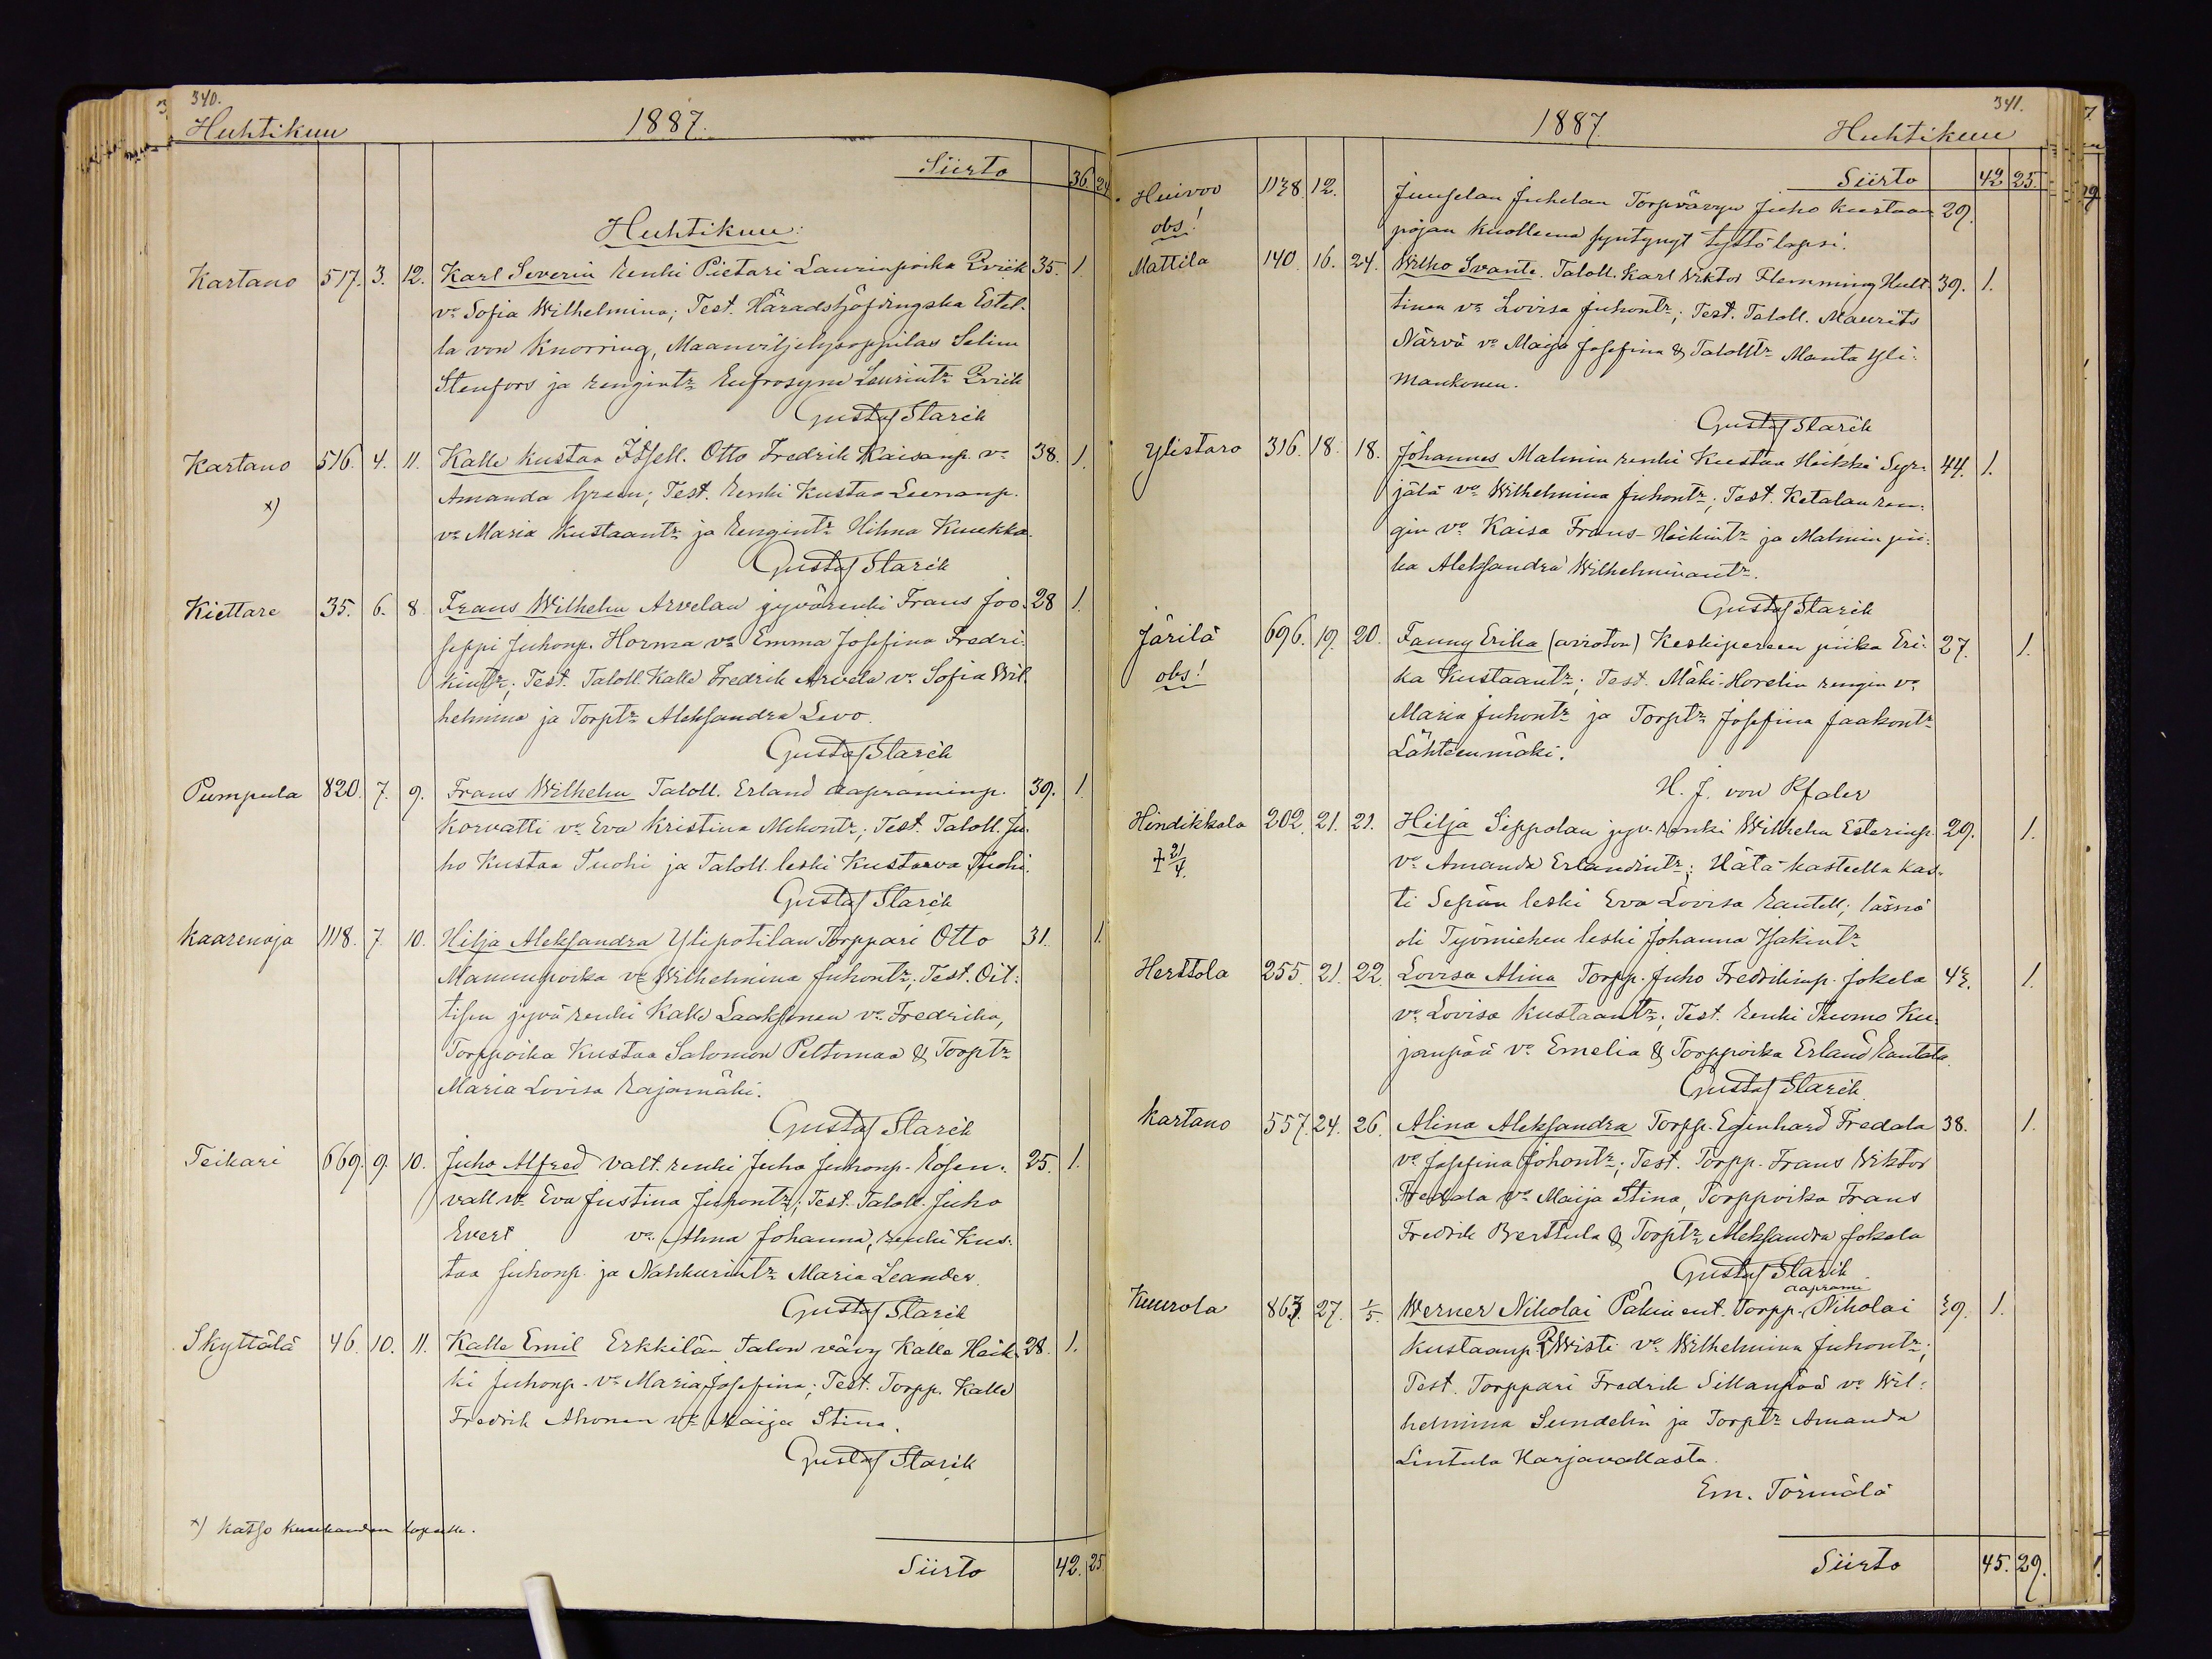 340.
Huhtikuu 1887.
Siirto 36. 24
Huhtikuu:
Kartano 517. 3. 12. Karl Severin renki Pietari Laurinpoika Qvick 35. 1.
vo Sofia Wilhelmina; Test. Häradshöfdingska Estel-
la von Knorring, Maanviljelysoppilas Selim
Stenfors ja rengintr Eufrosyne Laurintr Qvick
Gustaf Starck
Kartano 516. 4. 11. Kalle Kustaa Itsell. Otto Fredrik Kaisanp. vo 38. 1.
x)
Amanda Green; Test. renki Kustaa Leenanp.
vo Maria Kustaantr ja rengintr Hilma Kuukka.
Gustaf Starck
Kiettare 35. 6. 8. Frans Wilhelm Arvelan jyvärenki Frans Joo- 28 1.
seppi Juhonp. Horma vo Emma Josefina Fredri-
kintr; Test. Taloll. Kalle Fredrik Arvela vo Sofia Wil-
helmina ja Torptr Aleksandra Levo.
Gustaf Starck
Pumpula 820. 7. 9. Frans Wilhelm Taloll. Erland Aapraminp. 39. 1.
Korvatti vo Eva Kristina Mihontr; Test. Taloll. Ju-
ho Kustaa Tuohi ja Taloll. leski Kustaava Tuohi.
Gustaf Starck
Kaarenoja 1118. 7. 10. Hilja Aleksandra Ylipotilan Torppari Otto 31. 1.
Manuupoika vo Wilhelmina Juhontr; Test. Oit-
tisen jyvä renki Kalle Laaksonen vo Fredrika,
Torppoika Kustaa Salomon Peltomaa & Torptr
Maria Lovisa Rajamäki.
Gustaf Starck
Teikari 669. 9. 10. Juho Alfred valt. renki Juho Juhonp. Rosen- 25. 1.
vall vo Eva Justina Juhontr; Test. Taloll. Juho
Evert vo Alma Johanna, renki Kus-
taa Juhonp. ja Nahkurintr Maria Leander.
Gustaf Starck
Skyttälä 46. 10. 11. Kalle Emil Erkkilän Talon vävy Kalle Heik- 28. 1.
ki Juhonp. vo Maria Josefina; Test. Torpp. Kalle
Fredrik Ahonen vo Maija Stina.
Gustaf Starck
x) Katso kuukauden lopulla.
Siirto 42. 25
341.
1887. Huhtikuu
Siirto 42 25.
Huivoo 1138. 12. Juuselan Juhelan Torpvävyn Juho Kustaan 29.
obs!
pojan kuolleena syntynyt tyttö lapsi.
Mattila 140. 16. 24. Wilho Svante. Taloll. Karl Viktor Flemming Hult- 39. 1.
tinen vo Lovisa Juhontr; Test. Taloll. Maurits
Närvä vo Maija Josefina & Talolltr Manta Yli-
mankonen.
Gustaf Starck
Ylistaro 316. 18. 18. Johannes Malmin renki Kustaa Heikki Syr- 44. 1.
jälä vo Wilhelmina Juhontr; Test. Ketalan ren-
gin vo Kaisa Frans-Heikintr ja Malmin pii-
ka Aleksandra Wilhelminantr.
Gustaf Starck
Järilä 696. 19. 20. Fanny Erika (avioton) Keskipereen piika Eri- 27. 1.
obs!
ka Kustaantr; Test. Mäki-Horelin rengin vo
Maria Juhontr ja Torptr Josefiina Jaakontr
Lähteenmäki.
H. J. von Pfaler
Hindikkala 202. 21. 21. Hilja Seppolan jyv. renki Wilhelm Esterinp. 29. 1.
† 21/4.
vo Amanda Erlandintr; Hätä-kasteella kas-
ti Sepän leski Eva Lovisa Rantell; läsnä
oli Työmiehen leski Johanna Isakintr
Herttola 255. 21. 22. Lovisa Alina Torpp. Juho Fredrikinp. Jokela 43. 1.
vo Lovisa Kustaantr; Test. renki Tuomo Ku-
janpää vo Emelia & Torppoika Erland Rantala.
Gustaf Starck
Kartano 557. 24. 26. Alina Aleksandra Torpp. Eginhard Fredala 38. 1.
vo Josefina Johontr; Test. Torpp. Frans Viktor
Fredala vo Maija Stina, Torppoika Frans
Fredrik Berttula & Torptr Aleksandra Jokela
Gustaf Starck
aaprami
Kuurola 863. 27. 1/5. Werner Nikolai Päkin ent. Torpp. Nikolai 39. 1.
Kustaanp. Qwisti vo Wilhelmina Juhontr;
Test. Torppari Fredrik Sillanpää vo Wil-
helmina Sundelin ja Torptr Amanda
Lintula Harjavallasta.
Em. Törmälä
Siirto 45. 29.